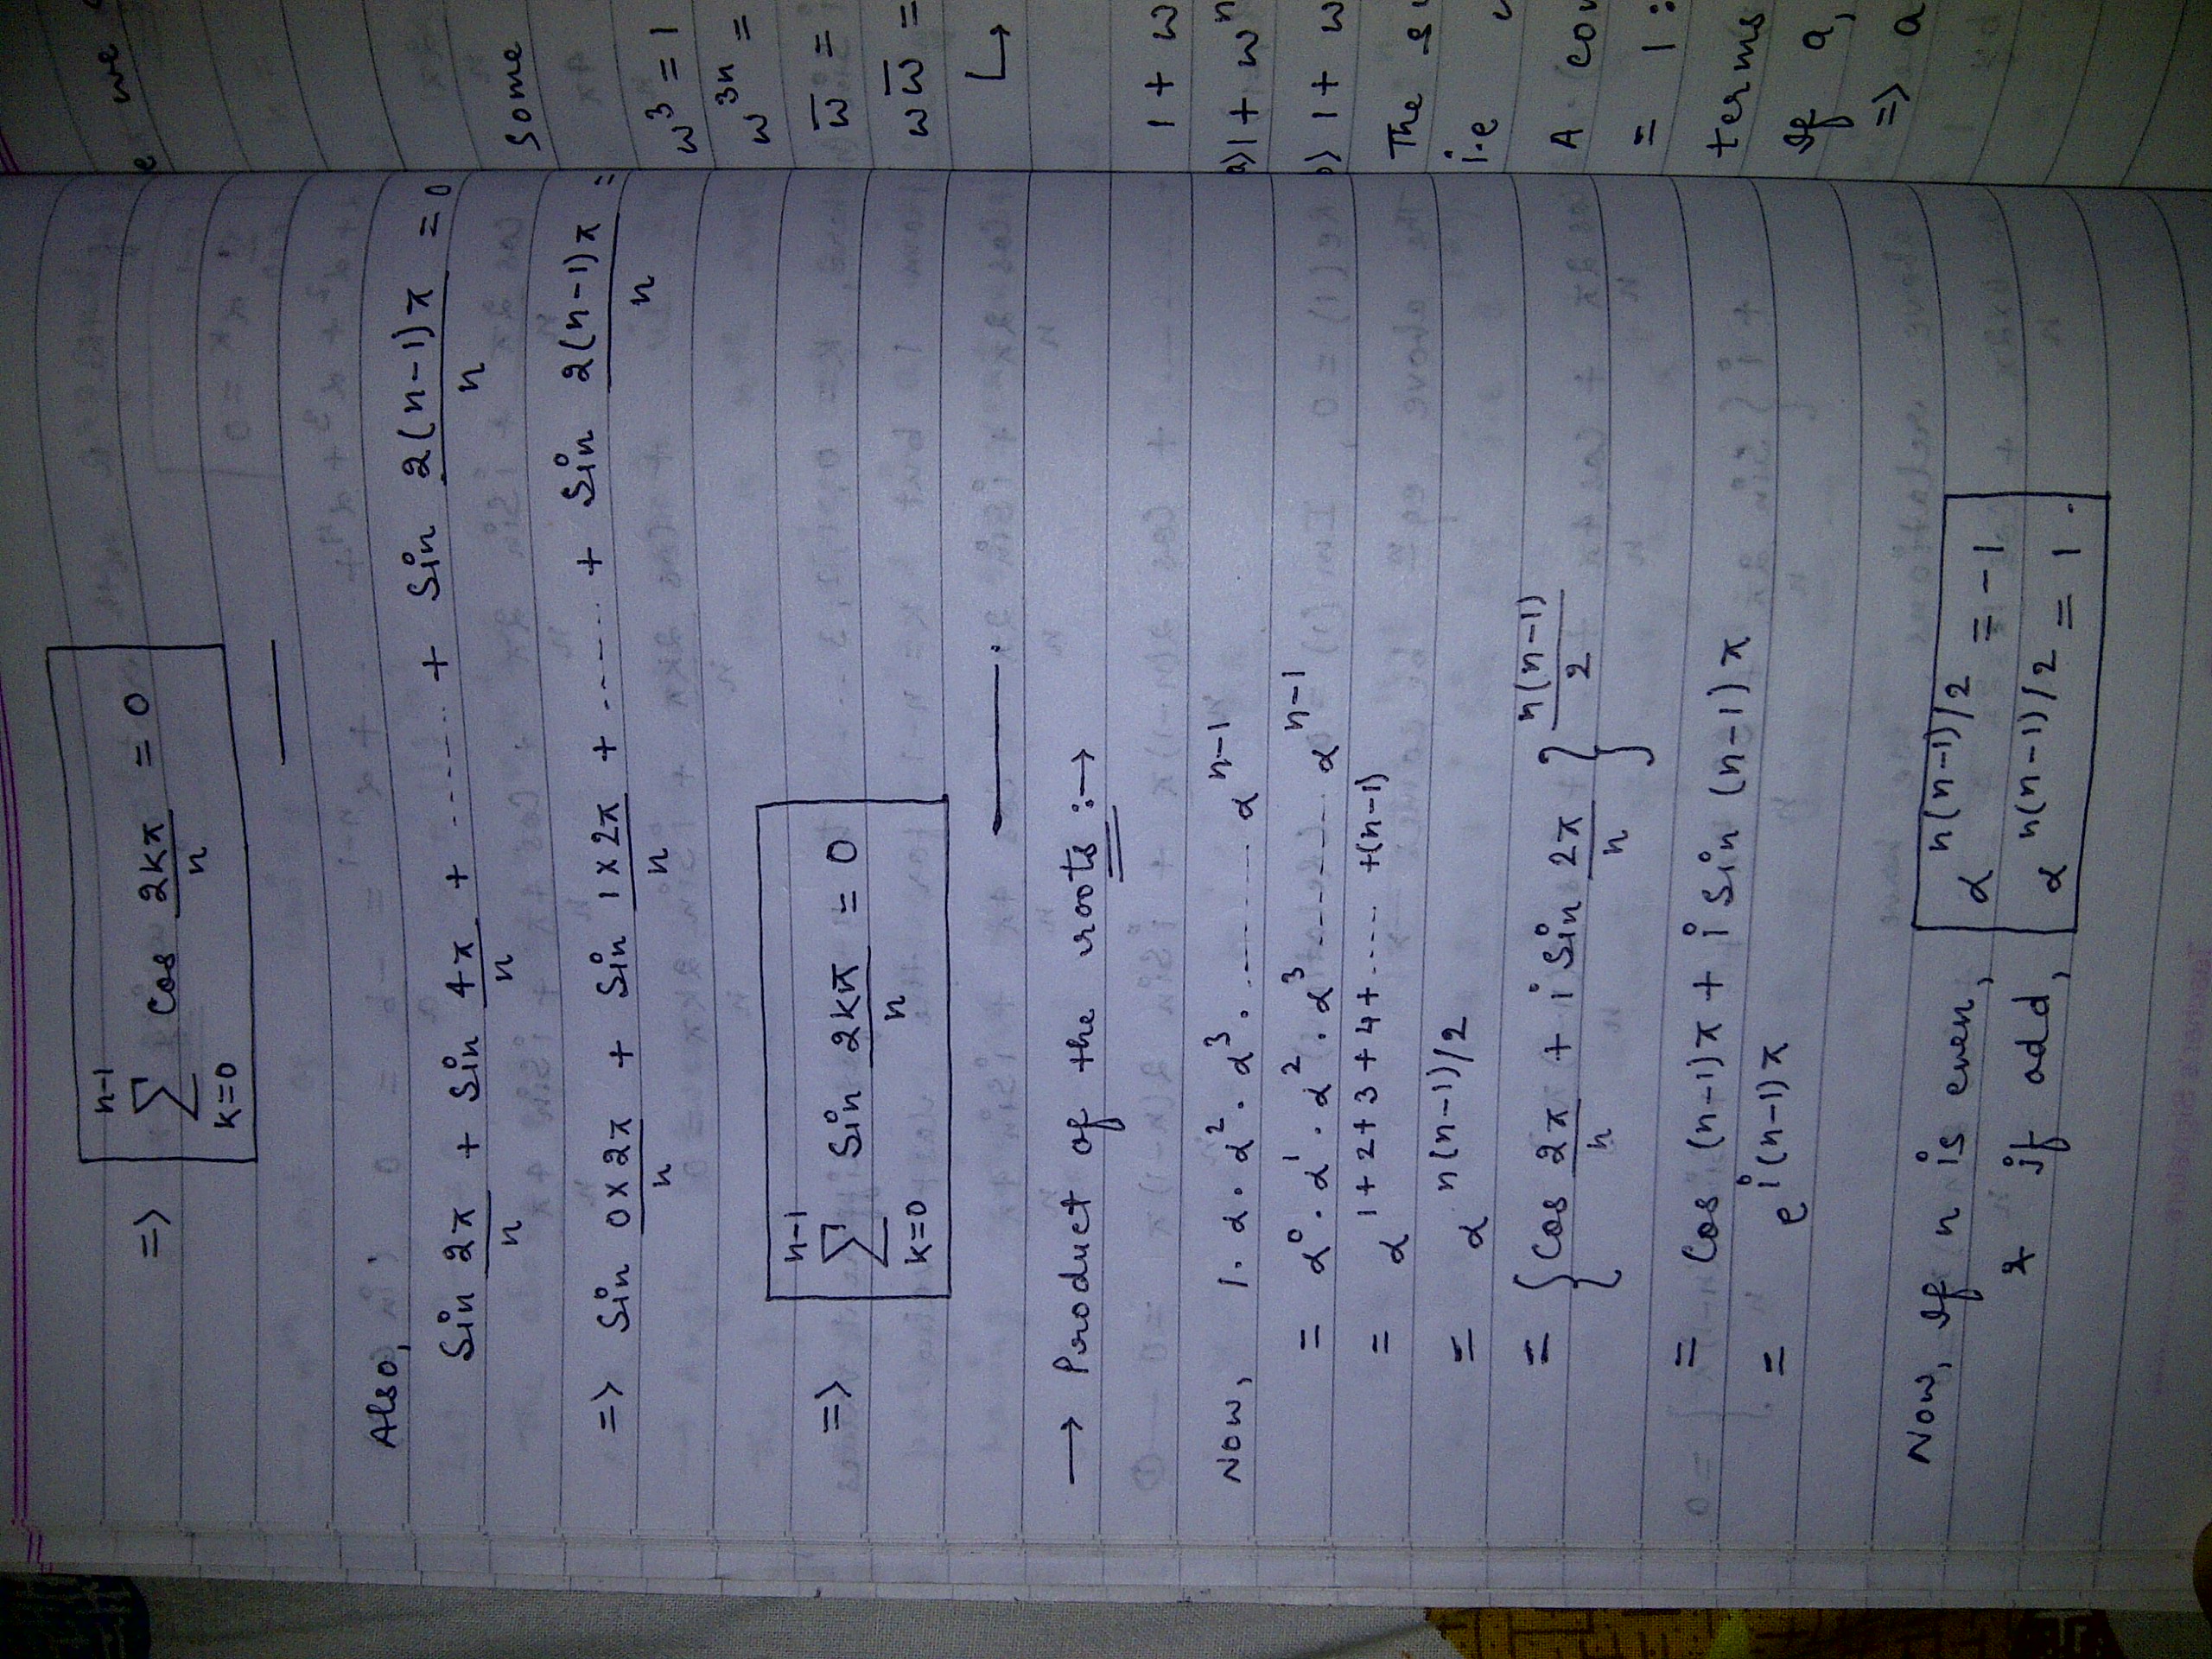 => n-1 ∑ k=0 Cos 2kπ/n = 0
Also,
Sin 2π/n + Sin 4π/n + ...... + Sin 2(n-1)π/n = 0
=> Sin 0×2π/n + Sin 1×2π/n + ...... + Sin 2(n-1)π/n =
=> n-1 ∑ k=0 Sin 2kπ/n = 0
→ Product of the roots :→
Now, 1. α. α². α³. ........ α^(n-1)
= α⁰. α¹. α². α³ ........ α^(n-1)
= α^(1+2+3+4+..... +(n-1))
= α^(n(n-1)/2)
= {Cos 2π/n + i Sin 2π/n}^(n(n-1)/2)
= Cos (n-1)π + i Sin (n-1)π
= e^(i(n-1)π)
Now, If n is even, α^(n(n-1)/2) = -1
& if odd, α^(n(n-1)/2) = 1.
we
Some
w³ = 1
w^(3n) =
w̄ =
w w̄ =
↳
1 + w
1 + w^n
1 + w
The
i.e
A
= 1:
terms
If a,
=> a